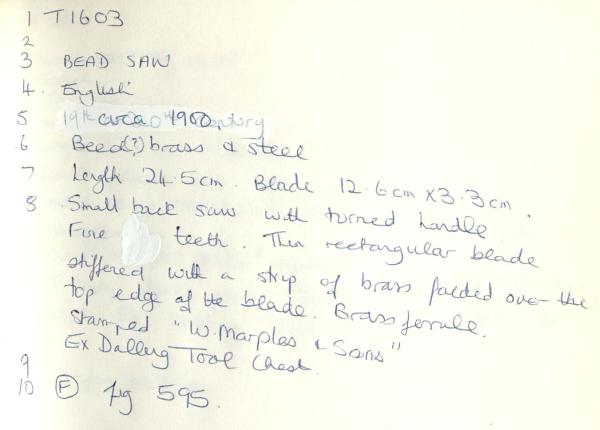 1 T1603
2
3 BEAD SAW
4. English
5 circa 1900,
6 Beed(?) brass & steel
7 Length 24.5cm. Blade 12.6cm x 3.3cm.
8 Small back saw with turned handle
Fine teeth. Thin rectangular blade
stiffened with a strip of brass folded over the
top edge of the blade. Brass ferrule.
Stamped "W. Marples & Sons"
9 Ex Tool Chest.
10 (F) fig 595.